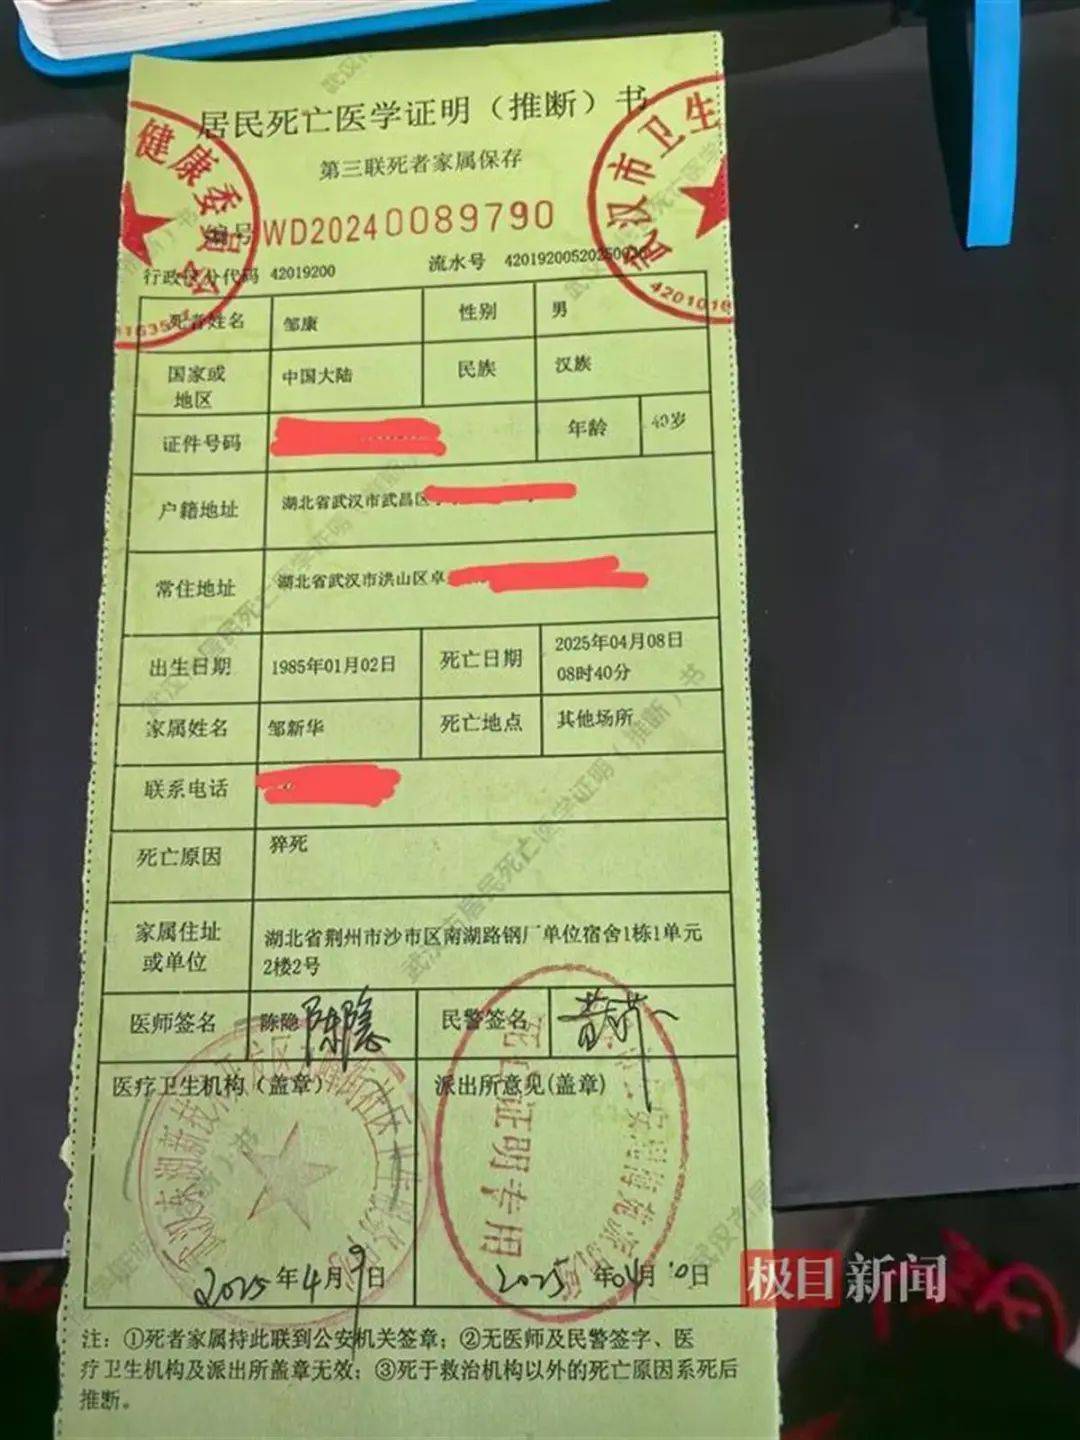 居民死亡医学证明（推断）书
第三联死者家属保存
编号 WD20240089790
行政区分代码 42019200 流水号 420192005202500
死者姓名 邹康 性别 男
国家或地区 中国大陆 民族 汉族
证件号码 年龄 40岁
户籍地址 湖北省武汉市武昌区
常住地址 湖北省武汉市洪山区卓
出生日期 1985年01月02日 死亡日期 2025年04月08日
08时40分
家属姓名 邹新华 死亡地点 其他场所
联系电话
死亡原因 猝死
家属住址或单位 湖北省荆州市沙市区南湖路钢厂单位宿舍1栋1单元
2楼2号
医师签名 陈隐 陈隐 民警签名
医疗卫生机构（盖章） 派出所意见(盖章)
2025年4月9日 2025年04月10日
注：①死者家属持此联到公安机关签章；②无医师及民警签字、医
疗卫生机构及派出所盖章无效；③死于救治机构以外的死亡原因系死后
推断。
健康委员
武汉市卫生
4201016
死亡证明专用
极目新闻